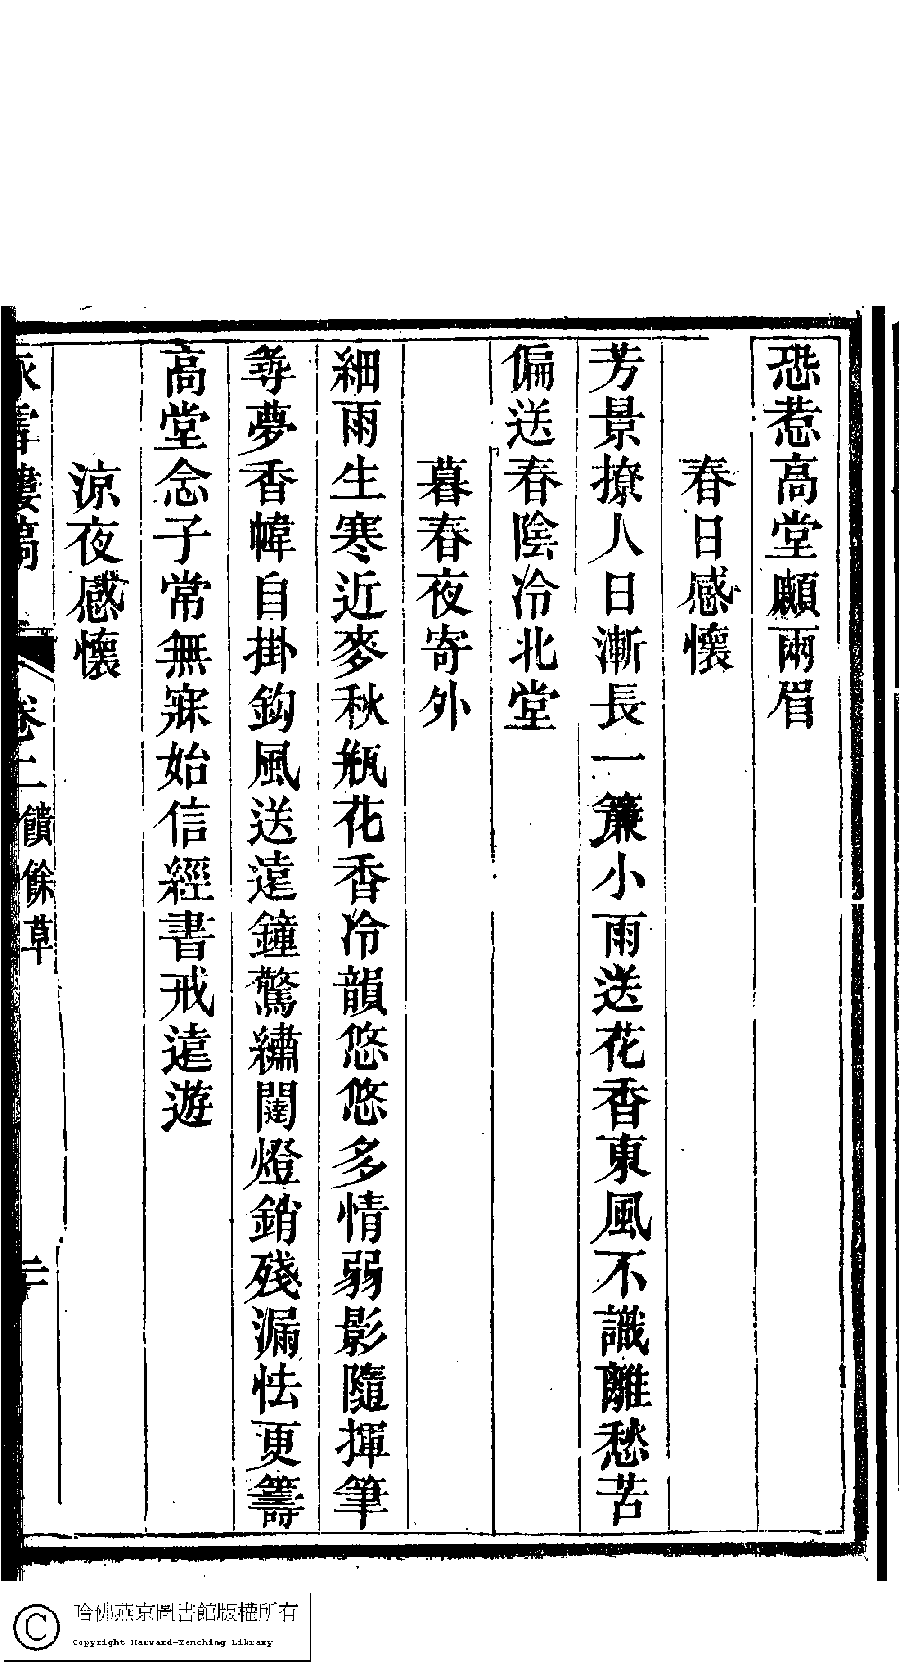 恐惹高堂顰兩眉
春日感懷
芳景撩人日漸長一簾小雨送花香東風不識離愁苦
偏送春陰冷北堂
暮春夜寄外
細雨生寒近麥秋瓶花香冷韻悠悠多情弱影隨揮筆
尋夢香幃自掛鈎風送遠鐘驚繡闥燈銷殘漏怯更籌
高堂念子常無寐始信經書戒遠遊
涼夜感懷
樓稿 卷二 饋餘草 二
哈佛燕京圖書館版權所有
Copyright Harvard-Yenching Library